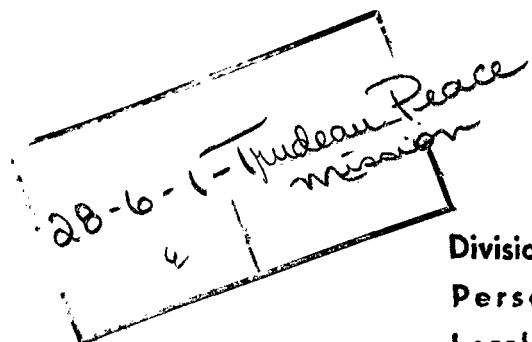 28-6-1-Trudeau Peace
mission
Divisio
Perso